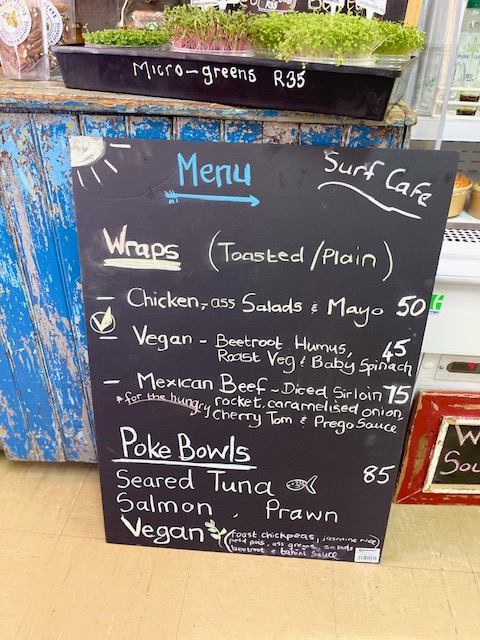 Micro-greens R35
Menu
Surf Cafe
Wraps (Toasted/Plain)
- Chicken, ass Salads & Mayo 50
- Vegan - Beetroot Humus, 45
Roast Veg & Baby Spinach
- Mexican Beef - Diced Sirloin 75
*for the hungry rocket, caramelised onion,
cherry Tom & Prego Sauce
Poke Bowls 85
Seared Tuna
Salmon, Prawn
Vegan (roast chickpeas, jasmine rice
ass greens, salads
beetroot & tahini sauce
W
Sou